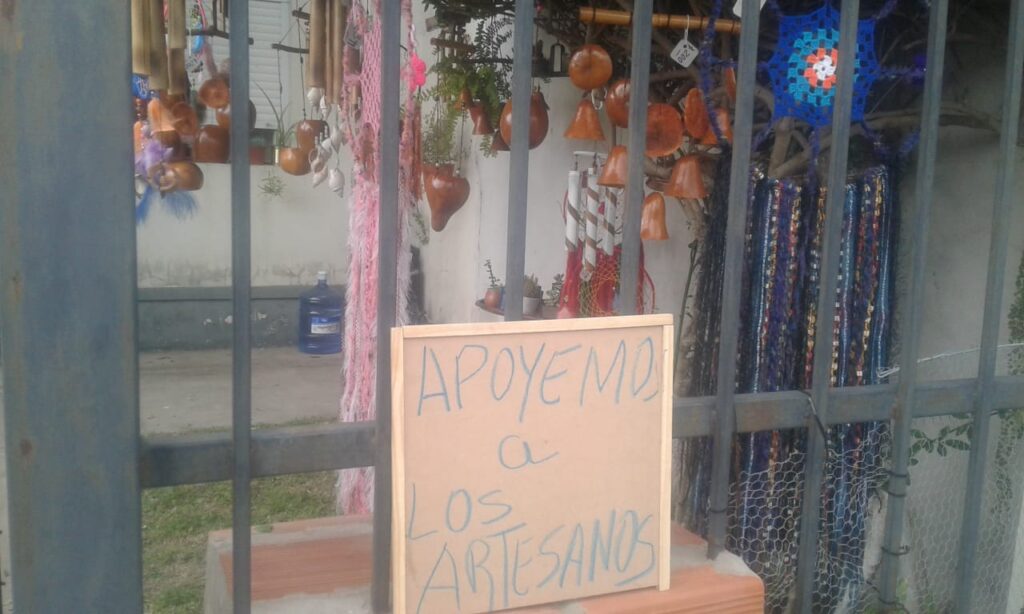 APOYEMOS
a
LOS
ARTESANOS